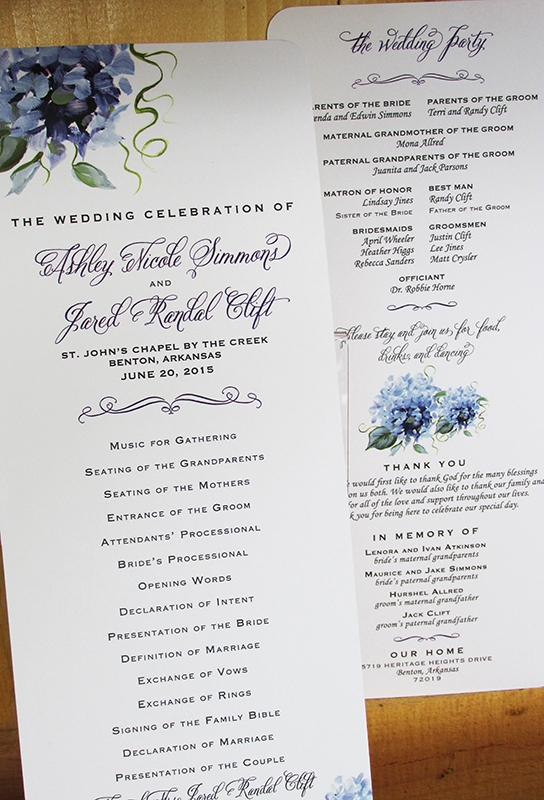 THE WEDDING CELEBRATION OF
Ashley Nicole Simmons
AND
Jared Randal Clift
ST. JOHN'S CHAPEL BY THE CREEK
BENTON, ARKANSAS
JUNE 20, 2015
MUSIC FOR GATHERING
SEATING OF THE GRANDPARENTS
SEATING OF THE MOTHERS
ENTRANCE OF THE GROOM
ATTENDANTS' PROCESSIONAL
BRIDE'S PROCESSIONAL
OPENING WORDS
DECLARATION OF INTENT
PRESENTATION OF THE BRIDE
DEFINITION OF MARRIAGE
EXCHANGE OF VOWS
EXCHANGE OF RINGS
SIGNING OF THE FAMILY BIBLE
DECLARATION OF MARRIAGE
PRESENTATION OF THE COUPLE
Jared Randal Clift
the Wedding Party
PARENTS OF THE BRIDE PARENTS OF THE GROOM
and Edwin Simmons Terri and Randy Clift
MATERNAL GRANDMOTHER OF THE GROOM
Mona Allred
PATERNAL GRANDPARENTS OF THE GROOM
Juanita and Jack Parsons
MATRON OF HONOR BEST MAN
Lindsay Jines Randy Clift
SISTER OF THE BRIDE FATHER OF THE GROOM
BRIDESMAIDS GROOMSMEN
April Wheeler Justin Clift
Heather Higgs Lee Jines
Rebecca Sanders Matt Crysler
OFFICIANT
Dr. Robbie Horne
Please stay and join us for food,
drinks, and dancing
THANK YOU
would first like to thank God for the many blessings
on us both. We would also like to thank our family and
for all of the love and support throughout our lives.
you for being here to celebrate our special day.
IN MEMORY OF
LENORA AND IVAN ATKINSON
bride's maternal grandparents
MAURICE AND JAKE SIMMONS
bride's paternal grandparents
HURSHEL ALLRED
groom's maternal grandfather
JACK CLIFT
groom's paternal grandfather
OUR HOME
5719 HERITAGE HEIGHTS DRIVE
Benton, Arkansas
72019